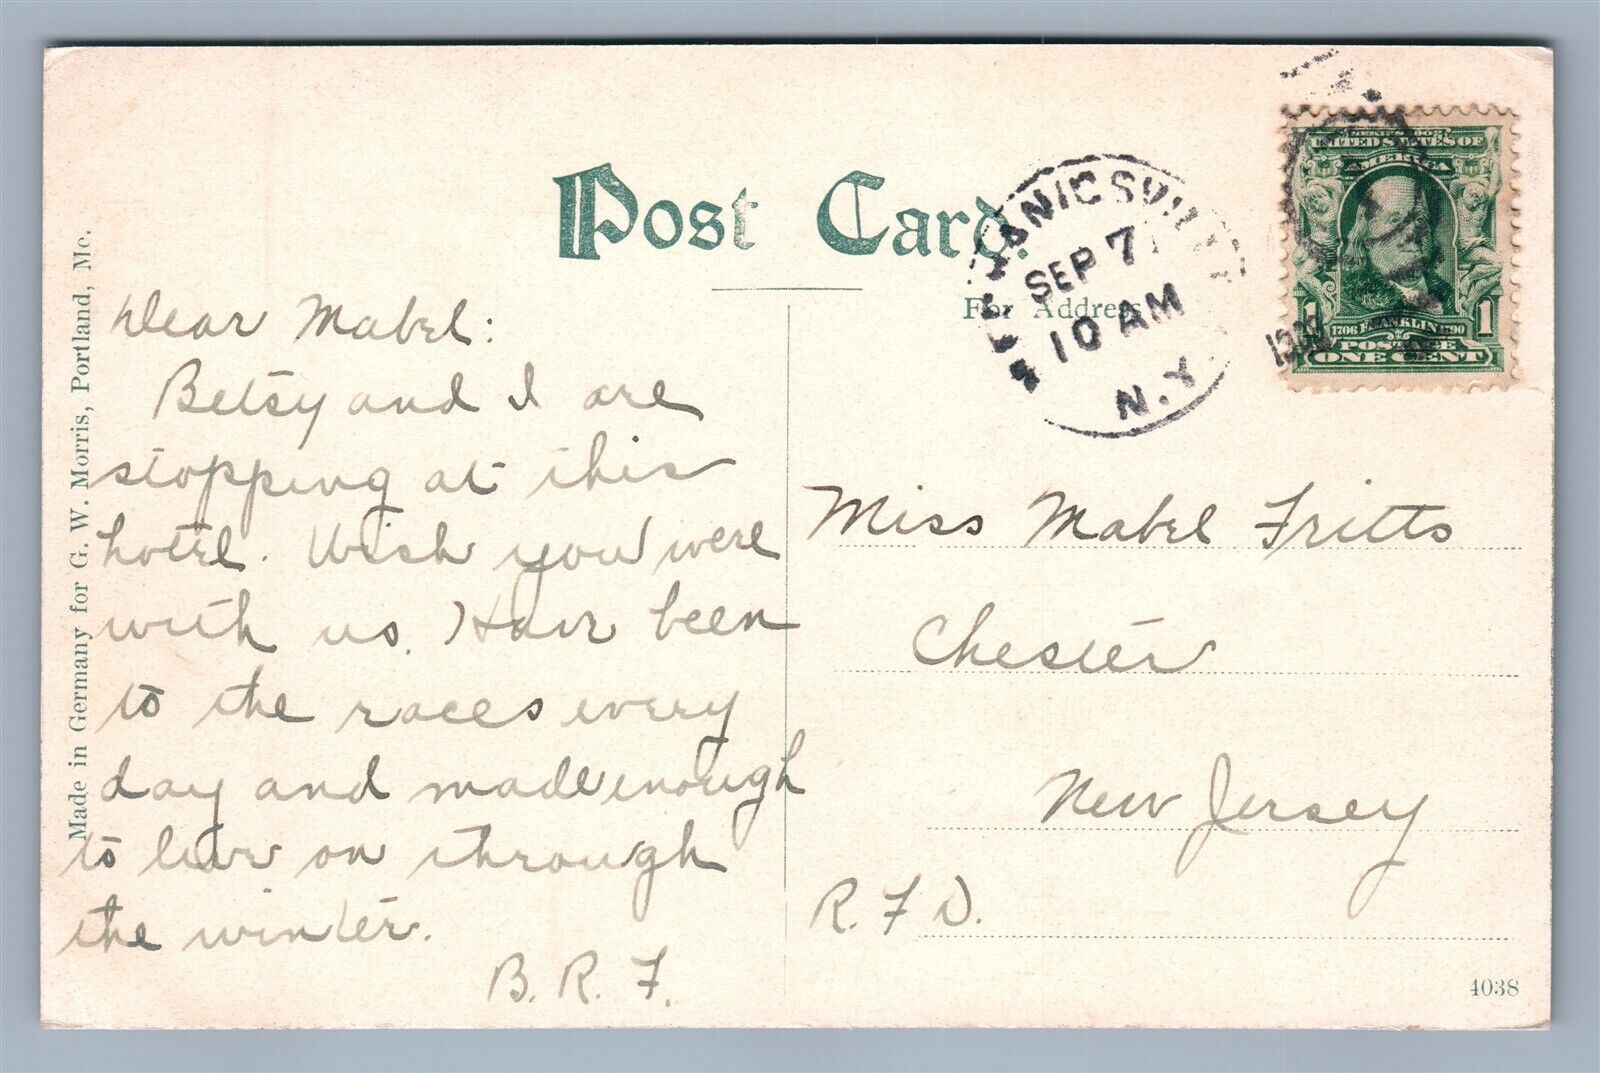 Post Card.
For Address
MECHANICSVILLE
SEP 7
10 AM
N.Y.
SERIES 1902
UNITED STATES OF
AMERICA
1706 FRANKLIN 1790
1 1
POSTAGE
ONE CENT
Made in Germany for G. W. Morris, Portland, Me.
Dear Mabel:
Betsy and I are
stopping at this
hotel. Wish you were
with us. Have been
to the races every
day and made enough
to live on through
the winter.
B. R. F.
Miss Mabel Fritts
Chester
New Jersey
R. F. D.
4038